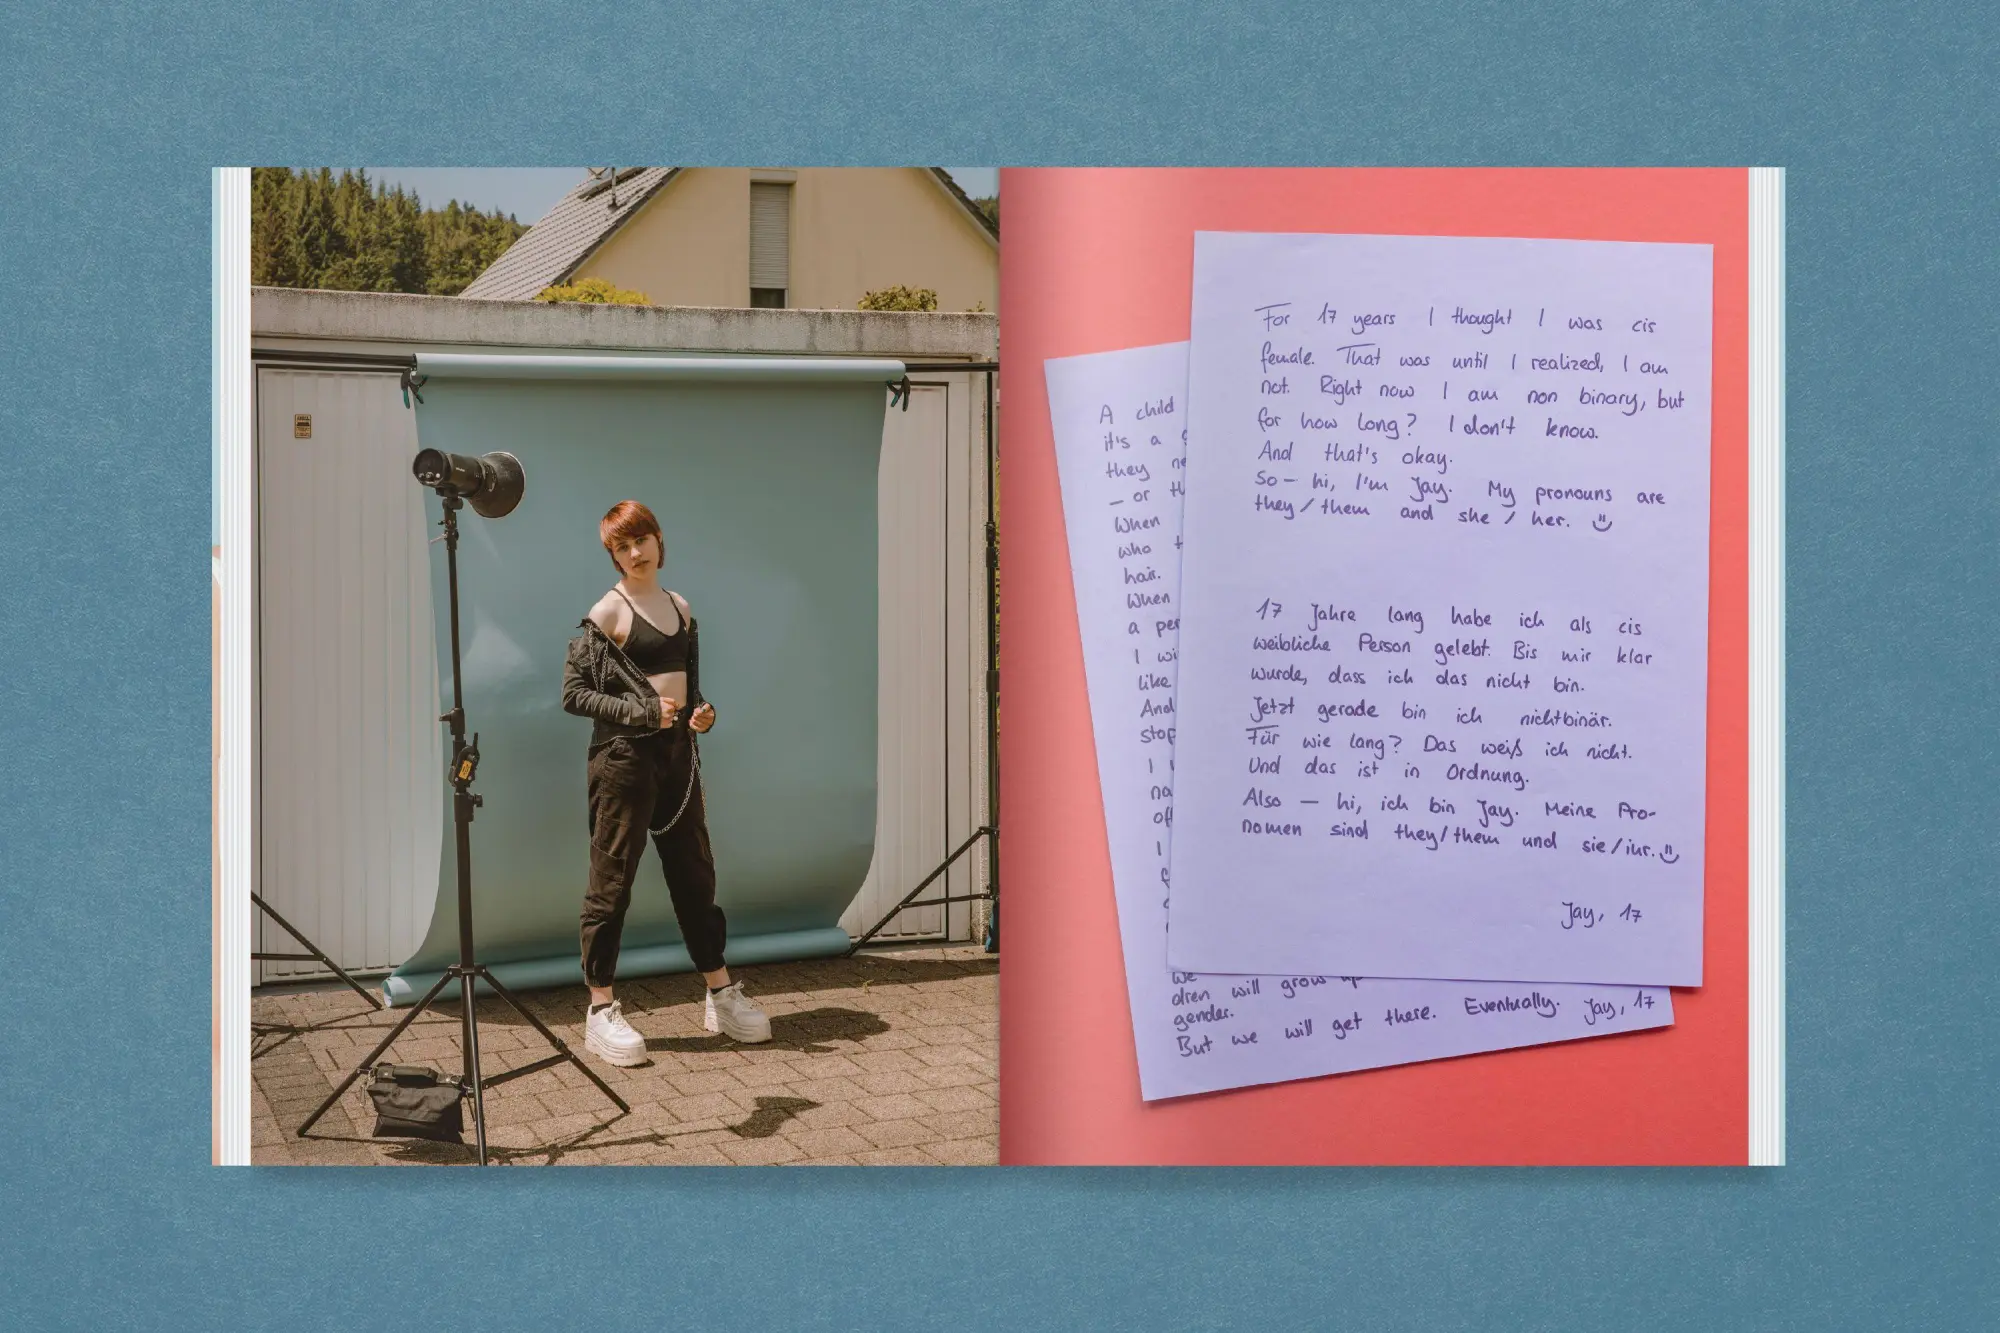 For 17 years I thought I was cis
female. That was until I realized, I am
not. Right now I am non binary, but
for how long? I don't know.
And that's okay.
So – hi, I'm Jay. My pronouns are
they/them and she / her.
17 Jahre lang habe ich als cis
weibliche Person gelebt. Bis mir klar
wurde, dass ich das nicht bin.
Jetzt gerade bin ich nichtbinär.
Für wie lang? Das weiß ich nicht.
Und das ist in Ordnung.
Also – hi, ich bin Jay. Meine Pro-
nomen sind they/them und sie/ihr.
Jay, 17
A child
it's a
they
– or
When
who
hair.
When
a
I
like
And
I
I
We
dren will grow up
gender.
But we will get there. Eventually. Jay, 17